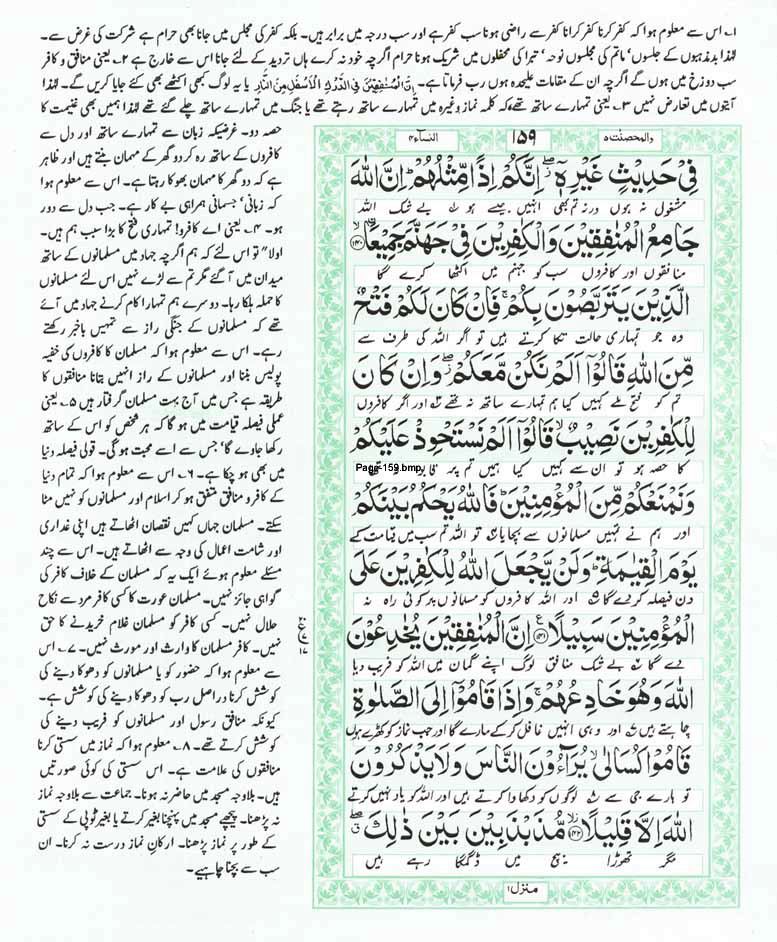 ۱۔ اس سے معلوم ہوا کہ کفر کرنا کفر کرانا کفر سے راضی ہونا سب کفر ہے اور سب درجہ میں برابر ہیں۔ بلکہ کفر کی مجلس میں جانا بھی حرام ہے شرکت کی غرض سے۔
لہٰذا بدمذہبوں کے جلسوں' ماتم کی مجلسوں نوحہ' تبرا کی محفلوں میں شریک ہونا حرام اگرچہ خود نہ کرے ہاں تردید کے لئے جانا اس سے خارج ہے ۲۔ یعنی منافق و کافر
سب دوزخ میں ہوں گے اگرچہ ان کے مقامات علیحدہ ہوں رب فرماتا ہے۔ اِنَّ الْمُنٰفِقِیْنَ فِی الدَّرْكِ الْاَسْفَلِ مِنَ النَّارِ یا یہ لوگ کبھی اکٹھے بھی کئے جایا کریں گے۔ لہٰذا
آیتوں میں تعارض نہیں ۳۔ یعنی تمہارے ساتھ تھے، کہ کلمہ نماز وغیرہ میں تمہارے ساتھ رہتے تھے یا جنگ میں تمہارے ساتھ چلے گئے تھے لہٰذا ہمیں بھی غنیمت کا
حصہ دو۔ غرضیکہ زبان سے تمہارے ساتھ اور دل سے
کافروں کے ساتھ رہ کر دو گھر کے مہمان بنتے ہیں اور ظاہر
ہے کہ دو گھر کا مہمان بھوکا رہتا ہے۔ اس سے معلوم ہوا
کہ زبانی' جسمانی ہمراہی بے کار ہے۔ جب دل سے دور
ہو۔ ۴۔ یعنی اے کافرو! تمہاری فتح کا بڑا سبب ہم ہیں۔
اولا" تو اس لئے کہ ہم اگرچہ جہاد میں مسلمانوں کے ساتھ
میدان میں آئے گئے مگر تم سے لڑے نہیں اس لئے مسلمانوں
کا حملہ ہلکا رہا۔ دوسرے ہم تمہارا کام کرنے جہاد میں آئے
تھے کہ مسلمانوں کے جنگی راز سے تمہیں باخبر رکھتے
رہے۔ اس سے معلوم ہوا کہ مسلمان کا کافروں کی خفیہ
پولیس بننا اور مسلمانوں کے راز انہیں بتانا منافقوں کا
طریقہ ہے جس میں آج بہت مسلمان گرفتار ہیں ۵۔ یعنی
عملی فیصلہ قیامت میں ہو گا کہ ہر شخص کو اس کے ساتھ
رکھا جاوے گا' جس سے اسے محبت ہو گی۔ قولی فیصلہ دنیا
میں بھی ہو چکا ہے۔ ۶۔ اس سے معلوم ہوا کہ تمام دنیا
کے کافر و منافق متفق ہو کر اسلام اور مسلمانوں کو نہیں مٹا
سکتے۔ مسلمان جہاں کہیں نقصان اٹھاتے ہیں اپنی غداری
اور شامت اعمال کی وجہ سے اٹھاتے ہیں۔ اس سے چند
مسئلے معلوم ہوئے ایک یہ کہ مسلمان کے خلاف کافر کی
گواہی جائز نہیں۔ مسلمان عورت کا کسی کافر مرد سے نکاح
حلال نہیں۔ کسی کافر کو مسلمان غلام خریدنے کا حق
نہیں۔ کافر مسلمان کا وارث اور مورث نہیں۔ ۷۔ اس
سے معلوم ہوا کہ حضور کو یا مسلمانوں کو دھوکا دینے کی
کوشش کرنا دراصل رب کو دھوکا دینے کی کوشش ہے۔
کیونکہ منافق رسول اور مسلمانوں کو فریب دینے کی
کوشش کرتے تھے۔ ۸۔ معلوم ہوا کہ نماز میں سستی کرنا
منافقوں کی علامت ہے۔ اس سستی کی کوئی صورتیں
ہیں۔ بلاوجہ مسجد میں حاضر نہ ہونا۔ جماعت سے بلاوجہ نماز
نہ پڑھنا۔ پیچھے مسجد میں پہنچنا بغیر کرتے یا بغیر ٹوپی کے سستی
کے طور پر نماز پڑھنا۔ ارکانِ نماز درست نہ کرنا۔ ان
سب سے بچنا چاہیے۔
والمحصنٰت ۵ ۱۵۹ النسآء ۴
فِیْ حَدِیْثٍ غَیْرِهٖۤ ۖ اِنَّكُمْ اِذًا مِّثْلُهُمْ ؕ اِنَّ اللّٰهَ
مشغول نہ ہوں ورنہ تم بھی انہیں جیسے ہو بے شک اللہ
جَامِعُ الْمُنٰفِقِیْنَ وَالْكٰفِرِیْنَ فِیْ جَهَنَّمَ جَمِیْعَا ۙ﴿۱۴۰﴾
منافقوں اور کافروں سب کو جہنم میں اکٹھا کرے گا
الَّذِیْنَ یَتَرَبَّصُوْنَ بِكُمْ ۚ فَاِنْ كَانَ لَكُمْ فَتْحٌ
وہ جو تمہاری حالت تکا کرتے ہیں تو اگر اللہ کی طرف سے
مِّنَ اللّٰهِ قَالُوْۤا اَلَمْ نَكُنْ مَّعَكُمْ ۖ وَاِنْ كَانَ
تم کو فتح ملے کہیں کیا ہم تمہارے ساتھ نہ تھے اور اگر کافروں
لِلْكٰفِرِیْنَ نَصِیْبٌ ۙ قَالُوْۤا اَلَمْ نَسْتَحْوِذْ عَلَیْكُمْ
کا حصہ ہو تو ان سے کہیں کیا ہمیں تم پر
Page-159.bmp
وَنَمْنَعْكُمْ مِّنَ الْمُؤْمِنِیْنَ ؕ فَاللّٰهُ یَحْكُمُ بَیْنَكُمْ
اور ہم نے تمہیں مسلمانوں سے بچایا تو اللہ تم سب میں قیامت کے
یَوْمَ الْقِیٰمَةِ ؕ وَلَنْ یَّجْعَلَ اللّٰهُ لِلْكٰفِرِیْنَ عَلَی
دن فیصلہ کر دے گا اور اللہ کافروں کو مسلمانوں پر کوئی راہ نہ
الْمُؤْمِنِیْنَ سَبِیْلًا ﴿۱۴۱﴾ اِنَّ الْمُنٰفِقِیْنَ یُخٰدِعُوْنَ
دے گا بے شک منافق لوگ اپنے گمان میں اللہ کو فریب دیا
اللّٰهَ وَهُوَ خَادِعُهُمْ ۚ وَاِذَا قَامُوْۤا اِلَی الصَّلٰوةِ
چاہتے ہیں اور وہی انہیں غافل کر کے مارے گا اور جب نماز کو کھڑے ہوں
قَامُوْا كُسَالٰی ۙ یُرَآءُوْنَ النَّاسَ وَلَا یَذْكُرُوْنَ
تو ہارے جی سے لوگوں کو دکھاوا کرتے ہیں اور اللہ کو یاد نہیں کرتے
اللّٰهَ اِلَّا قَلِیْلًا ﴿۱۴۲﴾ مُّذَبْذَبِیْنَ بَیْنَ ذٰلِكَ ۖ
مگر تھوڑا بیچ میں ڈگمگا رہے ہیں
منزل ۱